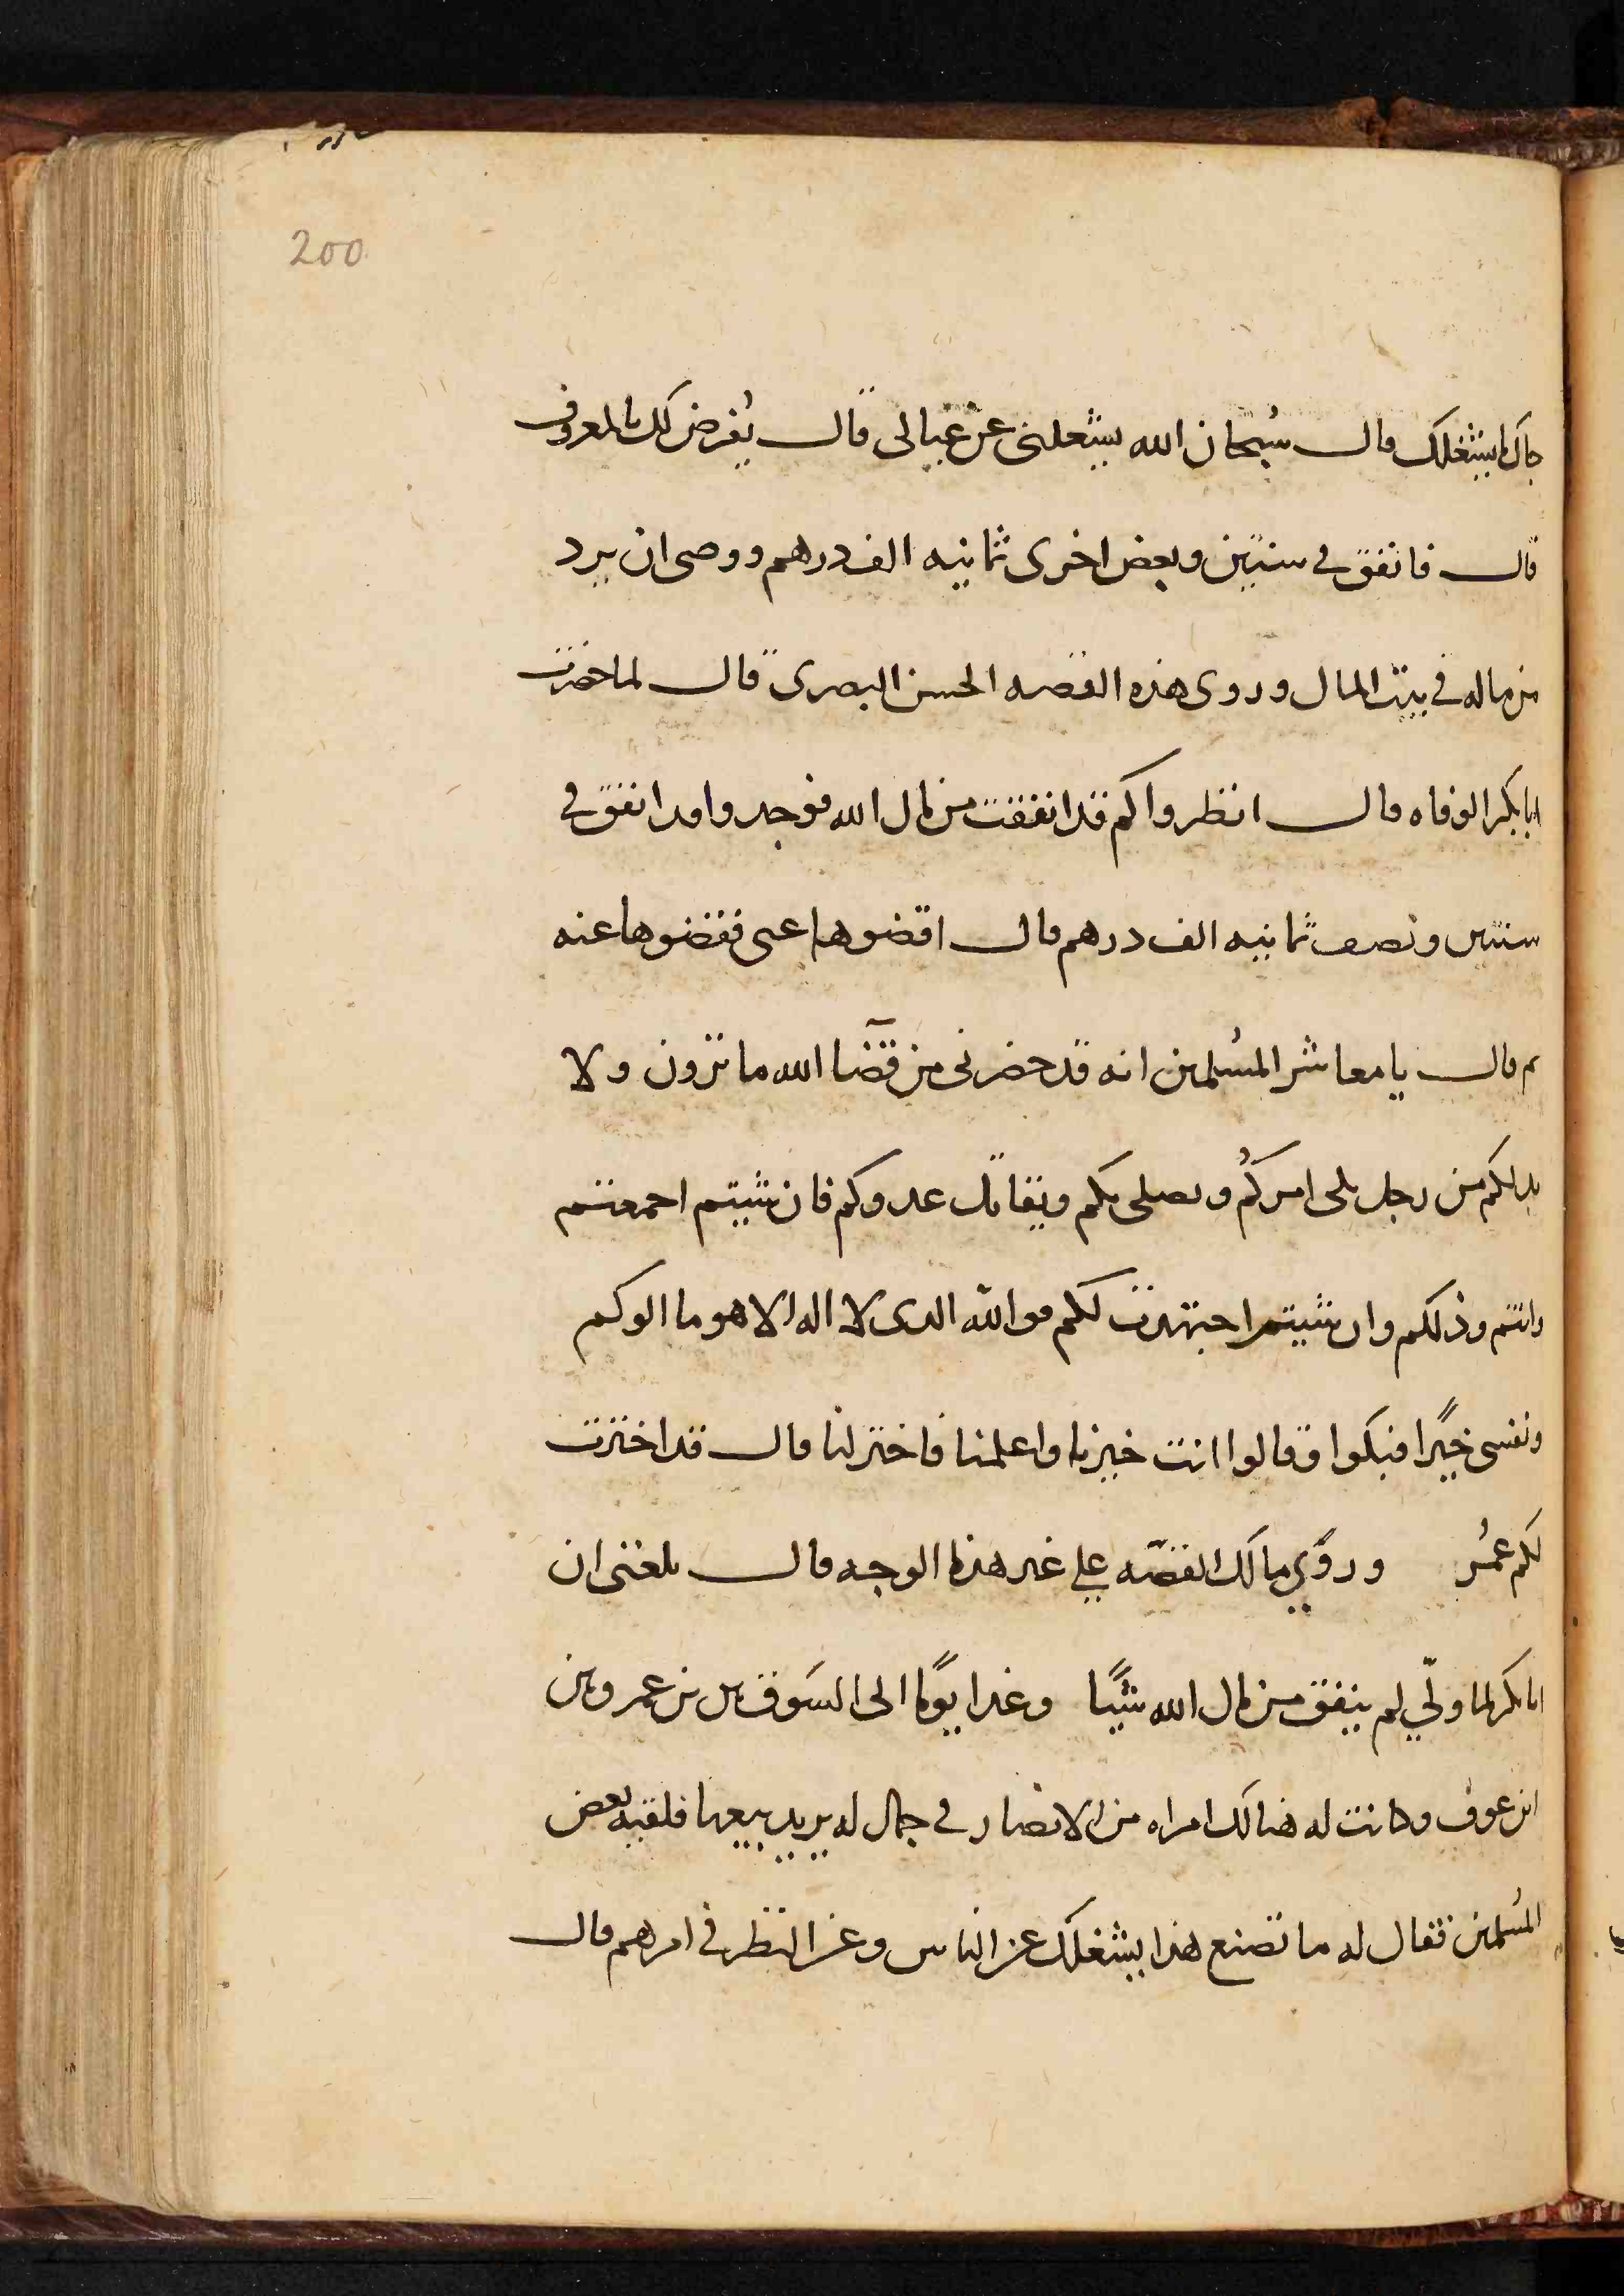 200
جاك ما يشغلك قال سُبحان الله يشغلنى عن عيالى قال يُفرض لك بالمعروف
قال فانفق فى سنتين وبعض اخرى ثمانيه الف درهم ووصى ان يرد
من ماله فى بيت المال وروى هذه القصه الحسن البصرى قال لما حضرت
ابا بكر الوفاه قال انظروا كم قد انفقت من مال الله فوجدوا قد انفق فى
سنتين ونصف ثمانيه الف درهم قال اقضوها عنى فقضوها عنه
ثم قال يا معاشر المسُلمين انه قد حضرنى من قضآ الله ما ترون ولا
بد لكم من رجل يلى امركُم ويصلى بكم ويقاتل عدوكم فان شيتم اجتمعتم
وانتم وذلكم وان شيتم اجتهدت لكم فوالله الذى لا اله الا هو ما الوكم
ونفسى خيرًا فبكوا وقالوا انت خيرنا واعلمنا فاختر لنا قال قد اخترت
لكم عمُر وروَي مالك القصّه علي غير هذا الوجه قال بلغنى ان
ابا بكر لما ولّي لم ينفق من مال الله شيًا وغدا يومًا الى السَوق من بنى عمرو بن
ابن عوف وكانت له هنالك امراه من الانصار فى جمال له يريد بيعها فلقيه بعض
المسُلمين فقال له ما تصنع هذا يشغلك عن الناس وعن النظر فى امرهم قال